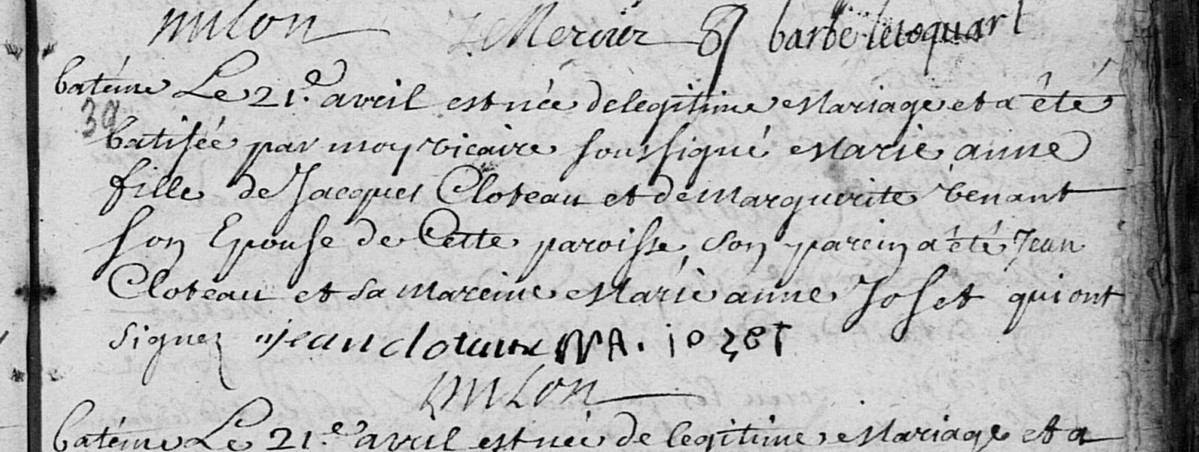 milon Mercier barbe letoquart
batéme Le 21.e avril est née de legitime Mariage et a été
39
batisée par moy vicaire soussigné Marie anne
fille de Jacques Cloteau et de Marguerite benant
son Epouse de Cette paroisse, son parein a été Jean
Cloteau et sa Mareine Marie anne Joset qui ont
signez jean clotaux MA. iozet
milon
batéme Le 21.e avril est née de legitime Mariage et a